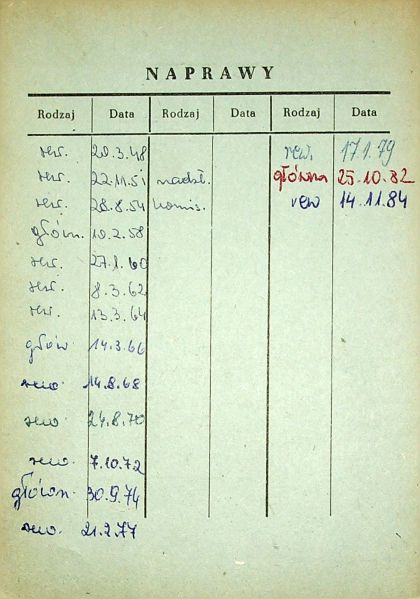 NAPRAWY
Rodzaj Data Rodzaj Data Rodzaj Data
rew. 20.3.48 rew. 17.1.79
rew. 22.11.51 nadzł. główna 25.10.82
rew. 28.8.54 komis. rew 14.11.84
główn. 10.2.58
rew. 27.1.60
rew. 8.3.62
rew. 13.3.64
głów. 14.3.66
rew. 14.8.68
rew 24.8.70
rew. 7.10.72
główn. 30.9.74
rew. 21.2.77